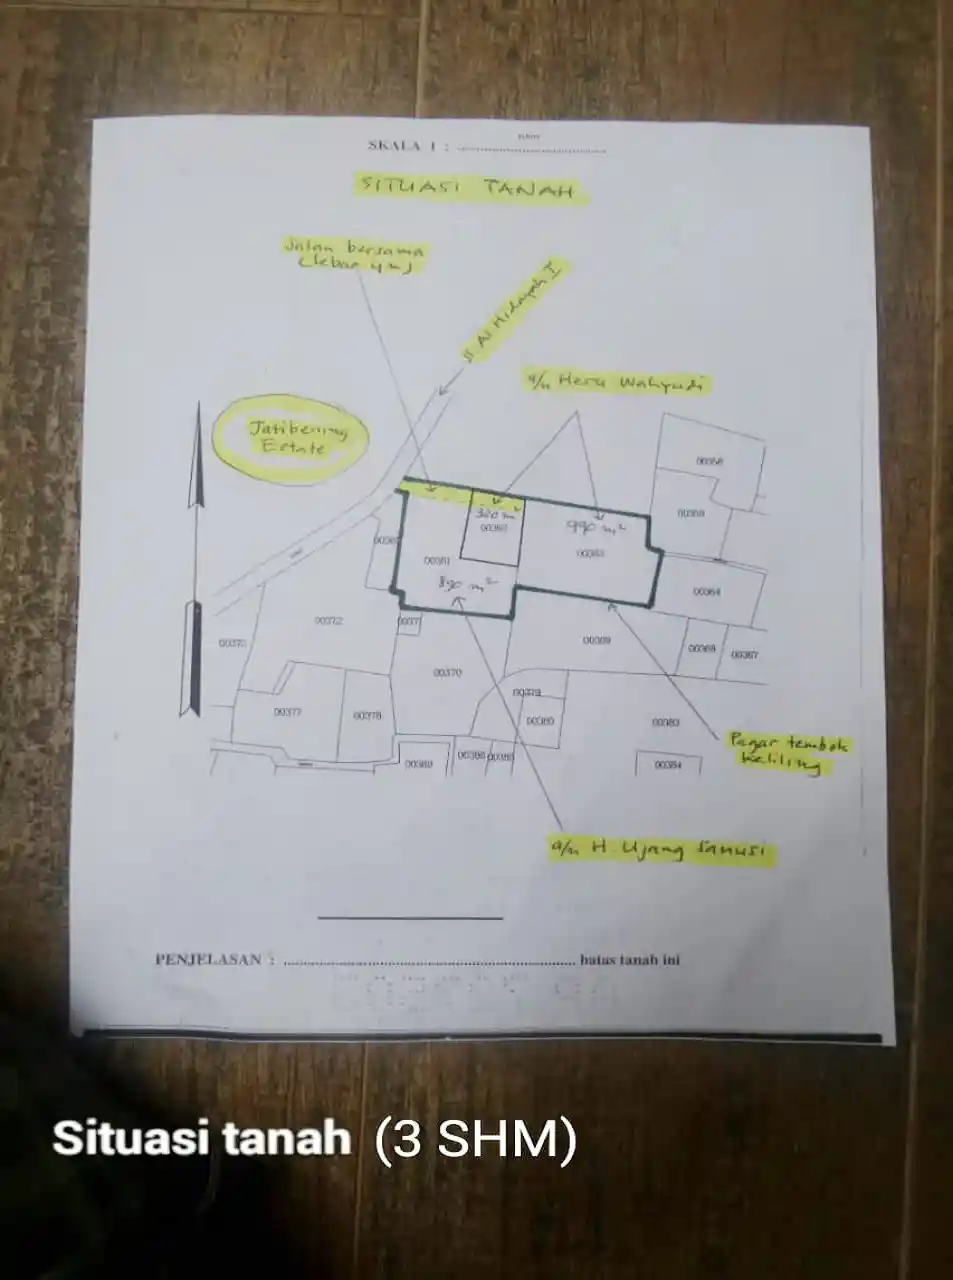 SKALA 1 :
SITUASI TANAH
Jalan bersama
(lebar 4m)
Jl. Al Hidayah I
a/n Heru Wahyudi
Jatibening
Estate
00358
00359
320 m²
990 m²
00361
890 m²
00364
00372
00369
00368
00367
00370
00377
00378
00379
00380
00383
00384
Pagar tembok
keliling
a/n H. Ujang Sanusi
PENJELASAN : batas tanah ini
Situasi tanah (3 SHM)